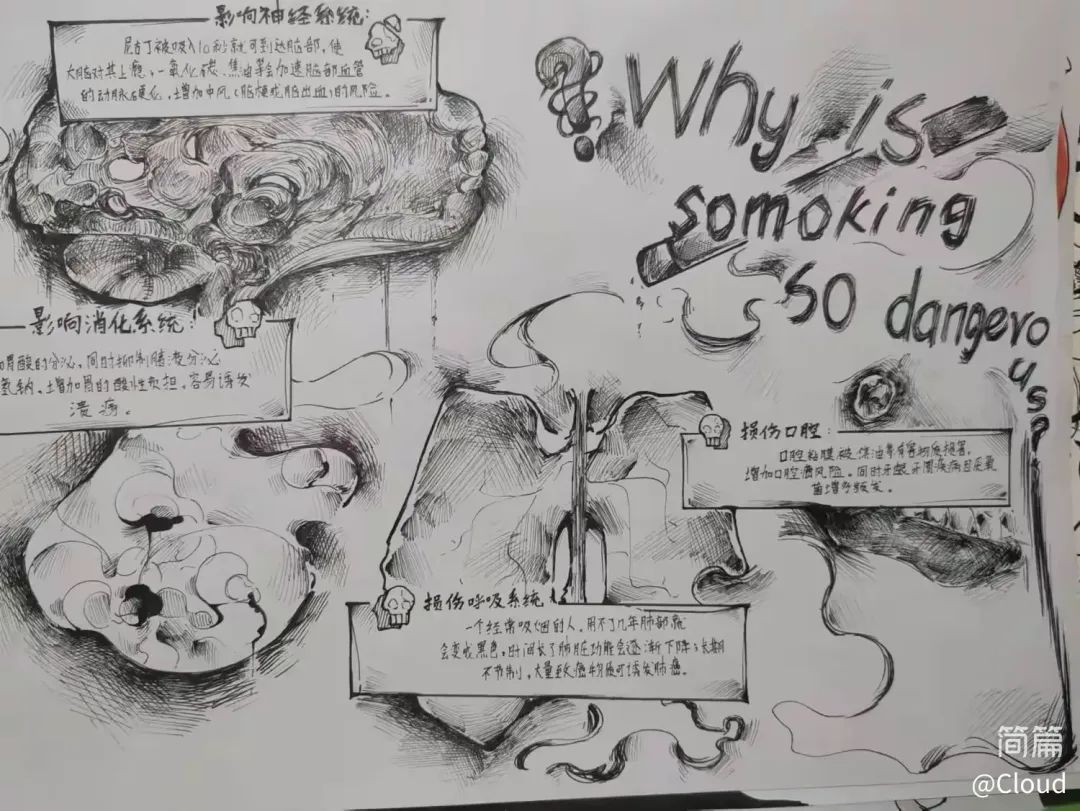 影响神经系统:
尼古丁被吸入10秒就可到达脑部, 使
大脑对其上瘾, 一氧化碳、焦油等会加速脑部血管
的动脉硬化, 增加中风(脑梗或脑出血)的风险.
Why is
somoking
so dangero
us?
影响消化系统:
胃酸的分泌, 同时抑制胰液分泌
氢钠, 增加胃的酸性负担, 容易诱发
溃疡.
损伤口腔:
口腔粘膜被焦油等有害物质损害,
增加口腔癌风险. 同时牙龈牙周疾病
菌增
损伤呼吸系统
一个经常吸烟的人, 用不了几年肺部就
会变成黑色, 时间长了肺脏功能会逐渐下降, 长期
不节制, 大量致癌物质可诱发肺癌.
简篇
@Cloud